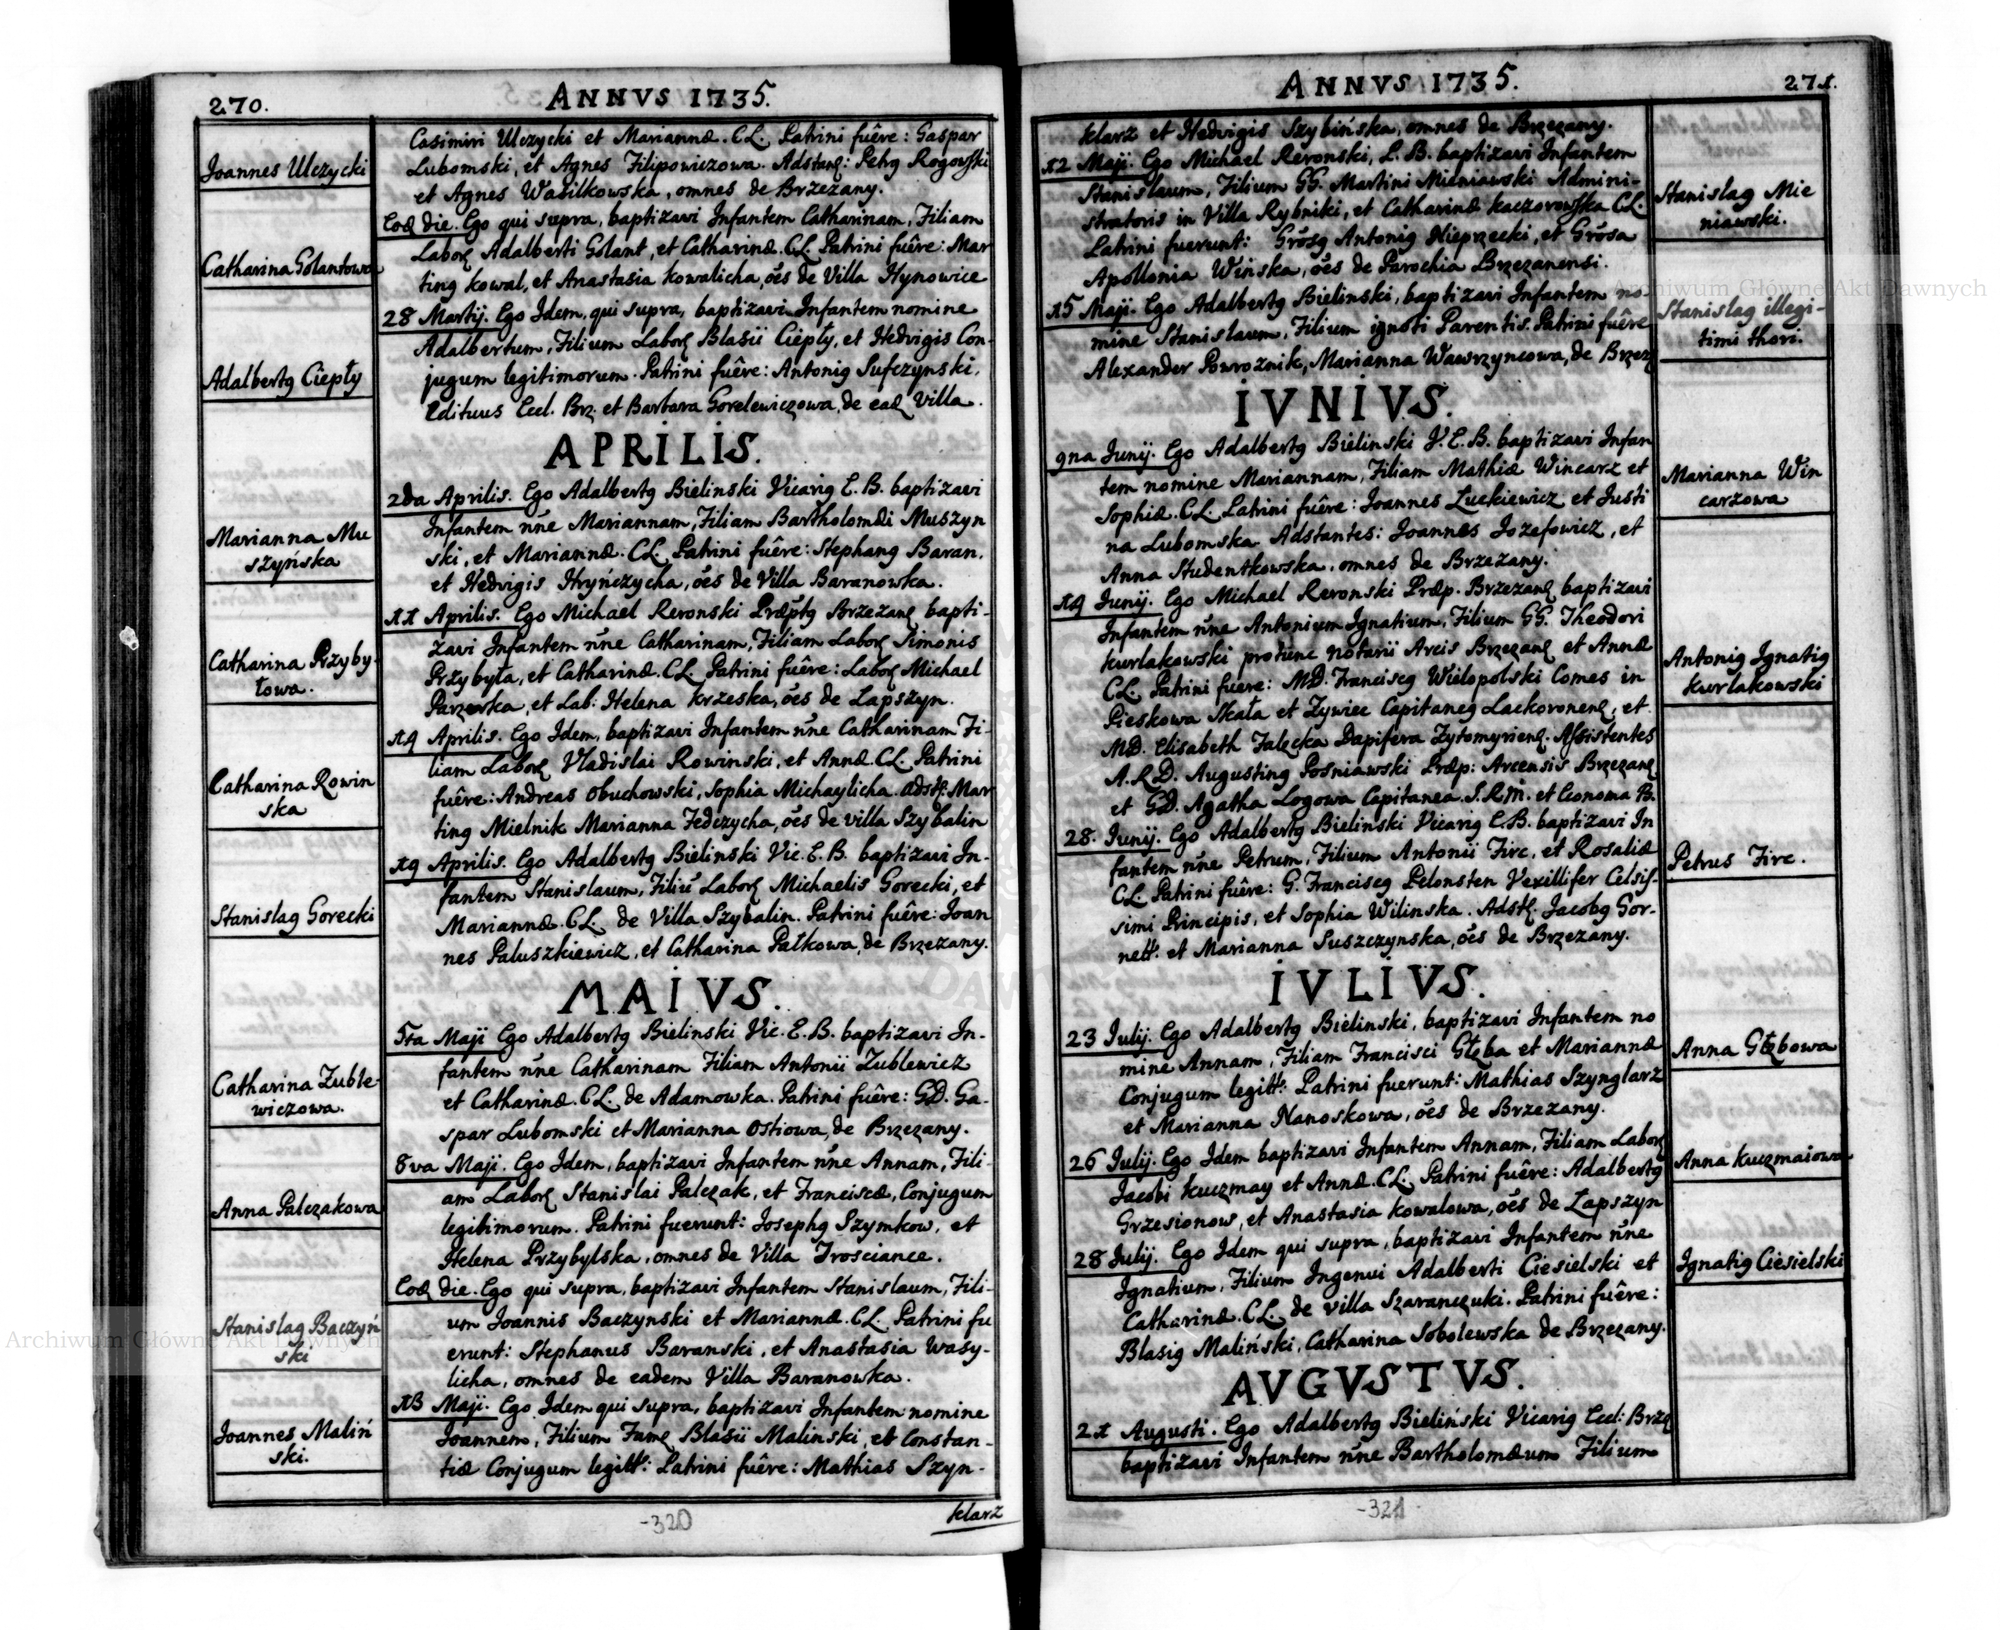 270.
ANNVS 1735.
Joannes Ulczycki
Catharina Golantowa
Adalbertꝯ Ciepły
Marianna Mu
szyńska
Catharina Przyby-
towa.
Catharina Rowin
ska
Stanislaꝯ Gorecki
Catharina Zuble-
wiczowa.
Anna Palczakowa
Stanislaꝯ Baczyń
ski
Joannes Maliń
ski.
Casimiri Ulczycki et Mariannæ. C.L. Patrini fuêre: Gaspar
Lubomski, et Agnes Filipowiczowa. Adstanꝭ: Petrꝯ Rogowski
et Agnes Wasilkowska, omnes de Brzezany.
Eoꝺ die. Ego qui supra, baptizavi Infantem Catharinam, Filiam
Laborꝭ Adalberti Golant, et Catharinæ. C.L. Patrini fuêre: Mar
tinꝯ Kowal, et Anastasia Kowalicha, oẽs de Villa Hynowice
28 Martij. Ego Idem, qui supra, baptizavi Infantem nomine
Adalbertum, Filium Laborꝭ Blasii Ciepły, et Hedvigis Con-
jugum legitimorum. Patrini fuêre: Antoniꝯ Sufczynski,
Edituus Eccl. Brz. et Barbara Gorelewiczowa, de eaꝺ Villa.
APRILIS.
2da Aprilis. Ego Adalbertꝯ Bielinski Vicariꝯ E. B. baptizavi
Infantem nñe Mariannam, Filiam Bartholomæi Muszyn
ski, et Mariannæ. C.L. Patrini fuêre: Stephanꝯ Baran,
et Hedvigis Hryńczycha, oẽs de Villa Baranowka.
11 Aprilis. Ego Michael Revonski Præptꝯ Brzezanꝭ bapti-
zavi Infantem nñe Catharinam, Filiam Laborꝭ Simonis
Przybyta, et Catharinæ. C.L. Patrini fuêre: Laborꝭ Michael
Parzewka, et Lab: Helena Krzeska, oẽs de Lapszyn.
14 Aprilis. Ego Idem, baptizavi Infantem nñe Catharinam Fi-
liam Laborꝭ Vladislai Rowinski, et Annæ. C.L. Patrini
fuêre: Andreas Obuchowski, Sophia Michaylicha. Adstꝭ: Mar
tinꝯ Mielnik Marianna Fedczycha, oẽs de villa Szybalin
19 Aprilis. Ego Adalbertꝯ Bielinski Vic. E. B. baptizavi In-
fantem Stanislaum, Filiũ Laborꝭ Michaelis Gorecki, et
Mariannæ. C.L. de Villa Szybalin. Patrini fuêre: Joan
nes Paluszkiewicz, et Catharina Pałkowa, de Brzezany.
MAIVS.
5ta Maji Ego Adalbertꝯ Bielinski Vic. E. B. baptizavi In-
fantem nñe Catharinam Filiam Antonii Zublewicz
et Catharinæ. C.L. de Adamowka. Patrini fuêre: GD. Ga-
spar Lubomski et Marianna Ostiowa, de Brzezany.
8va Maji. Ego Idem, baptizavi Infantem nñe Annam, Fili-
am Laborꝭ Stanislai Palczak, et Franciscæ, Conjugum
legitimorum. Patrini fuerunt: Josephꝯ Szymkow, et
Helena Przybylska, omnes de Villa Trosciance.
Eoꝺ die. Ego qui supra, baptizavi Infantem Stanislaum, Fili-
um Joannis Baczynski et Mariannæ. C.L. Patrini fu
erunt: Stephanus Baranski, et Anastasia Wasy-
licha, omnes de eadem Villa Baranowka.
13 Maji. Ego Idem qui supra, baptizavi Infantem nomine
Joannem, Filium Famꝭ Blasii Malinski, et Constan-
tiæ Conjugum legitt: Patrini fuêre: Mathias Szyn-
klarz
-320
ANNVS 1735.
271.
klarz et Hedvigis Szybińska, omnes de Brzezany.
12 Maji. Ego Michael Revonski, P. B. baptizavi Infantem
Stanislaum, Filium GG. Martini Mieniawski Admini-
stratoris in Villa Rybniki, et Catharinæ Kaczorowska C.L.
Patrini fuerunt: Grõsꝯ Antoniꝯ Nieprzecki, et Grõsa
Apollonia Wińska, oẽs de Parochia Brzezanensi.
15 Maji. Ego Adalbertꝯ Bielinski, baptizavi Infantem no-
mine Stanislaum, Filium ignoti Parentis. Patrini fuêre
Alexander Powroznik, Marianna Wawrzyncowa, de Brzez
IVNIVS.
9na Junij. Ego Adalbertꝯ Bielinski V. E. B. baptizavi Infan
tem nomine Mariannam, Filiam Mathiæ Wincarz et
Sophiæ. C.L. Patrini fuêre: Joannes Luckiewicz et Justi
na Lubomska. Adstantes: Joannes Jozefowicz, et
Anna Studentkowska, omnes de Brzezany.
14 Junij. Ego Michael Revonski Præp. Brzezanꝭ baptizavi
Infantem nñe Antonium Ignatium, Filium GG. Theodori
Kurlakowski protunc Notarii Arcis Brzezanꝭ et Annæ
C.L. Patrini fuere: MD. Franciscꝯ Wielopolski Comes in
Pieskowa Skała et Zywiec Capitaneꝯ Lackoronenꝭ, et
MD. Elisabeth Zalęcka Dapifera Zytomyrienꝭ. Assistentes
A.R.D. Augustinꝯ Posniawski Præp: Arcensis Brzezanꝭ
et GD. Agatha Logowa Capitanea. S.R.M. et Economa B.
28. Junij. Ego Adalbertꝯ Bielinski Vicariꝯ E.B. baptizavi In
fantem nñe Petrum, Filium Antonii Firc, et Rosaliæ
C.L. Patrini fuêre: G. Franciscꝯ Pelonsten Vexillifer Celsis-
simi Principis, et Sophia Wilinska. Adstꝭ. Jacobꝯ Gor-
nett: et Marianna Suszczynska, oẽs de Brzezany.
IVLIVS.
23 Julij. Ego Adalbertꝯ Bielinski, baptizavi Infantem no
mine Annam, Filiam Francisci Głęba et Mariannæ
Conjugum legitt: Patrini fuerunt: Mathias Szynglarz
et Marianna Nanoskowa, oẽs de Brzezany.
26 Julij. Ego Idem baptizavi Infantem Annam, Filiam Laborꝭ
Jacobi Kuczmay et Annæ. C.L. Patrini fuêre: Adalbertꝯ
Grzesionow, et Anastasia Kowalowa, oẽs de Lapszyn
28 Julij. Ego Idem qui supra, baptizavi Infantem nñe
Ignatium, Filium Ingenui Adalberti Ciesielski et
Catharinæ. C.L. de villa Szaranczuki. Patrini fuêre:
Blasiꝯ Maliński, Catharina Sobolewska de Brzezany.
AVGVSTVS.
21 Augusti. Ego Adalbertꝯ Bieliński Vicariꝯ Eccl: Brzꝭ
baptizavi Infantem nñe Bartholomæum Filium
Stanislaꝯ Mie
niawski.
Stanislaꝯ illegi-
timi thori.
Marianna Win
carzowa
Antoniꝯ Ignatiꝯ
Kurlakowski
Petrus Firc.
Anna Głębowa
Anna Kuczmaiowa
Ignatiꝯ Ciesielski
-321
Archiwum Główne Akt Dawnych
Archiwum Główne Akt Dawnych